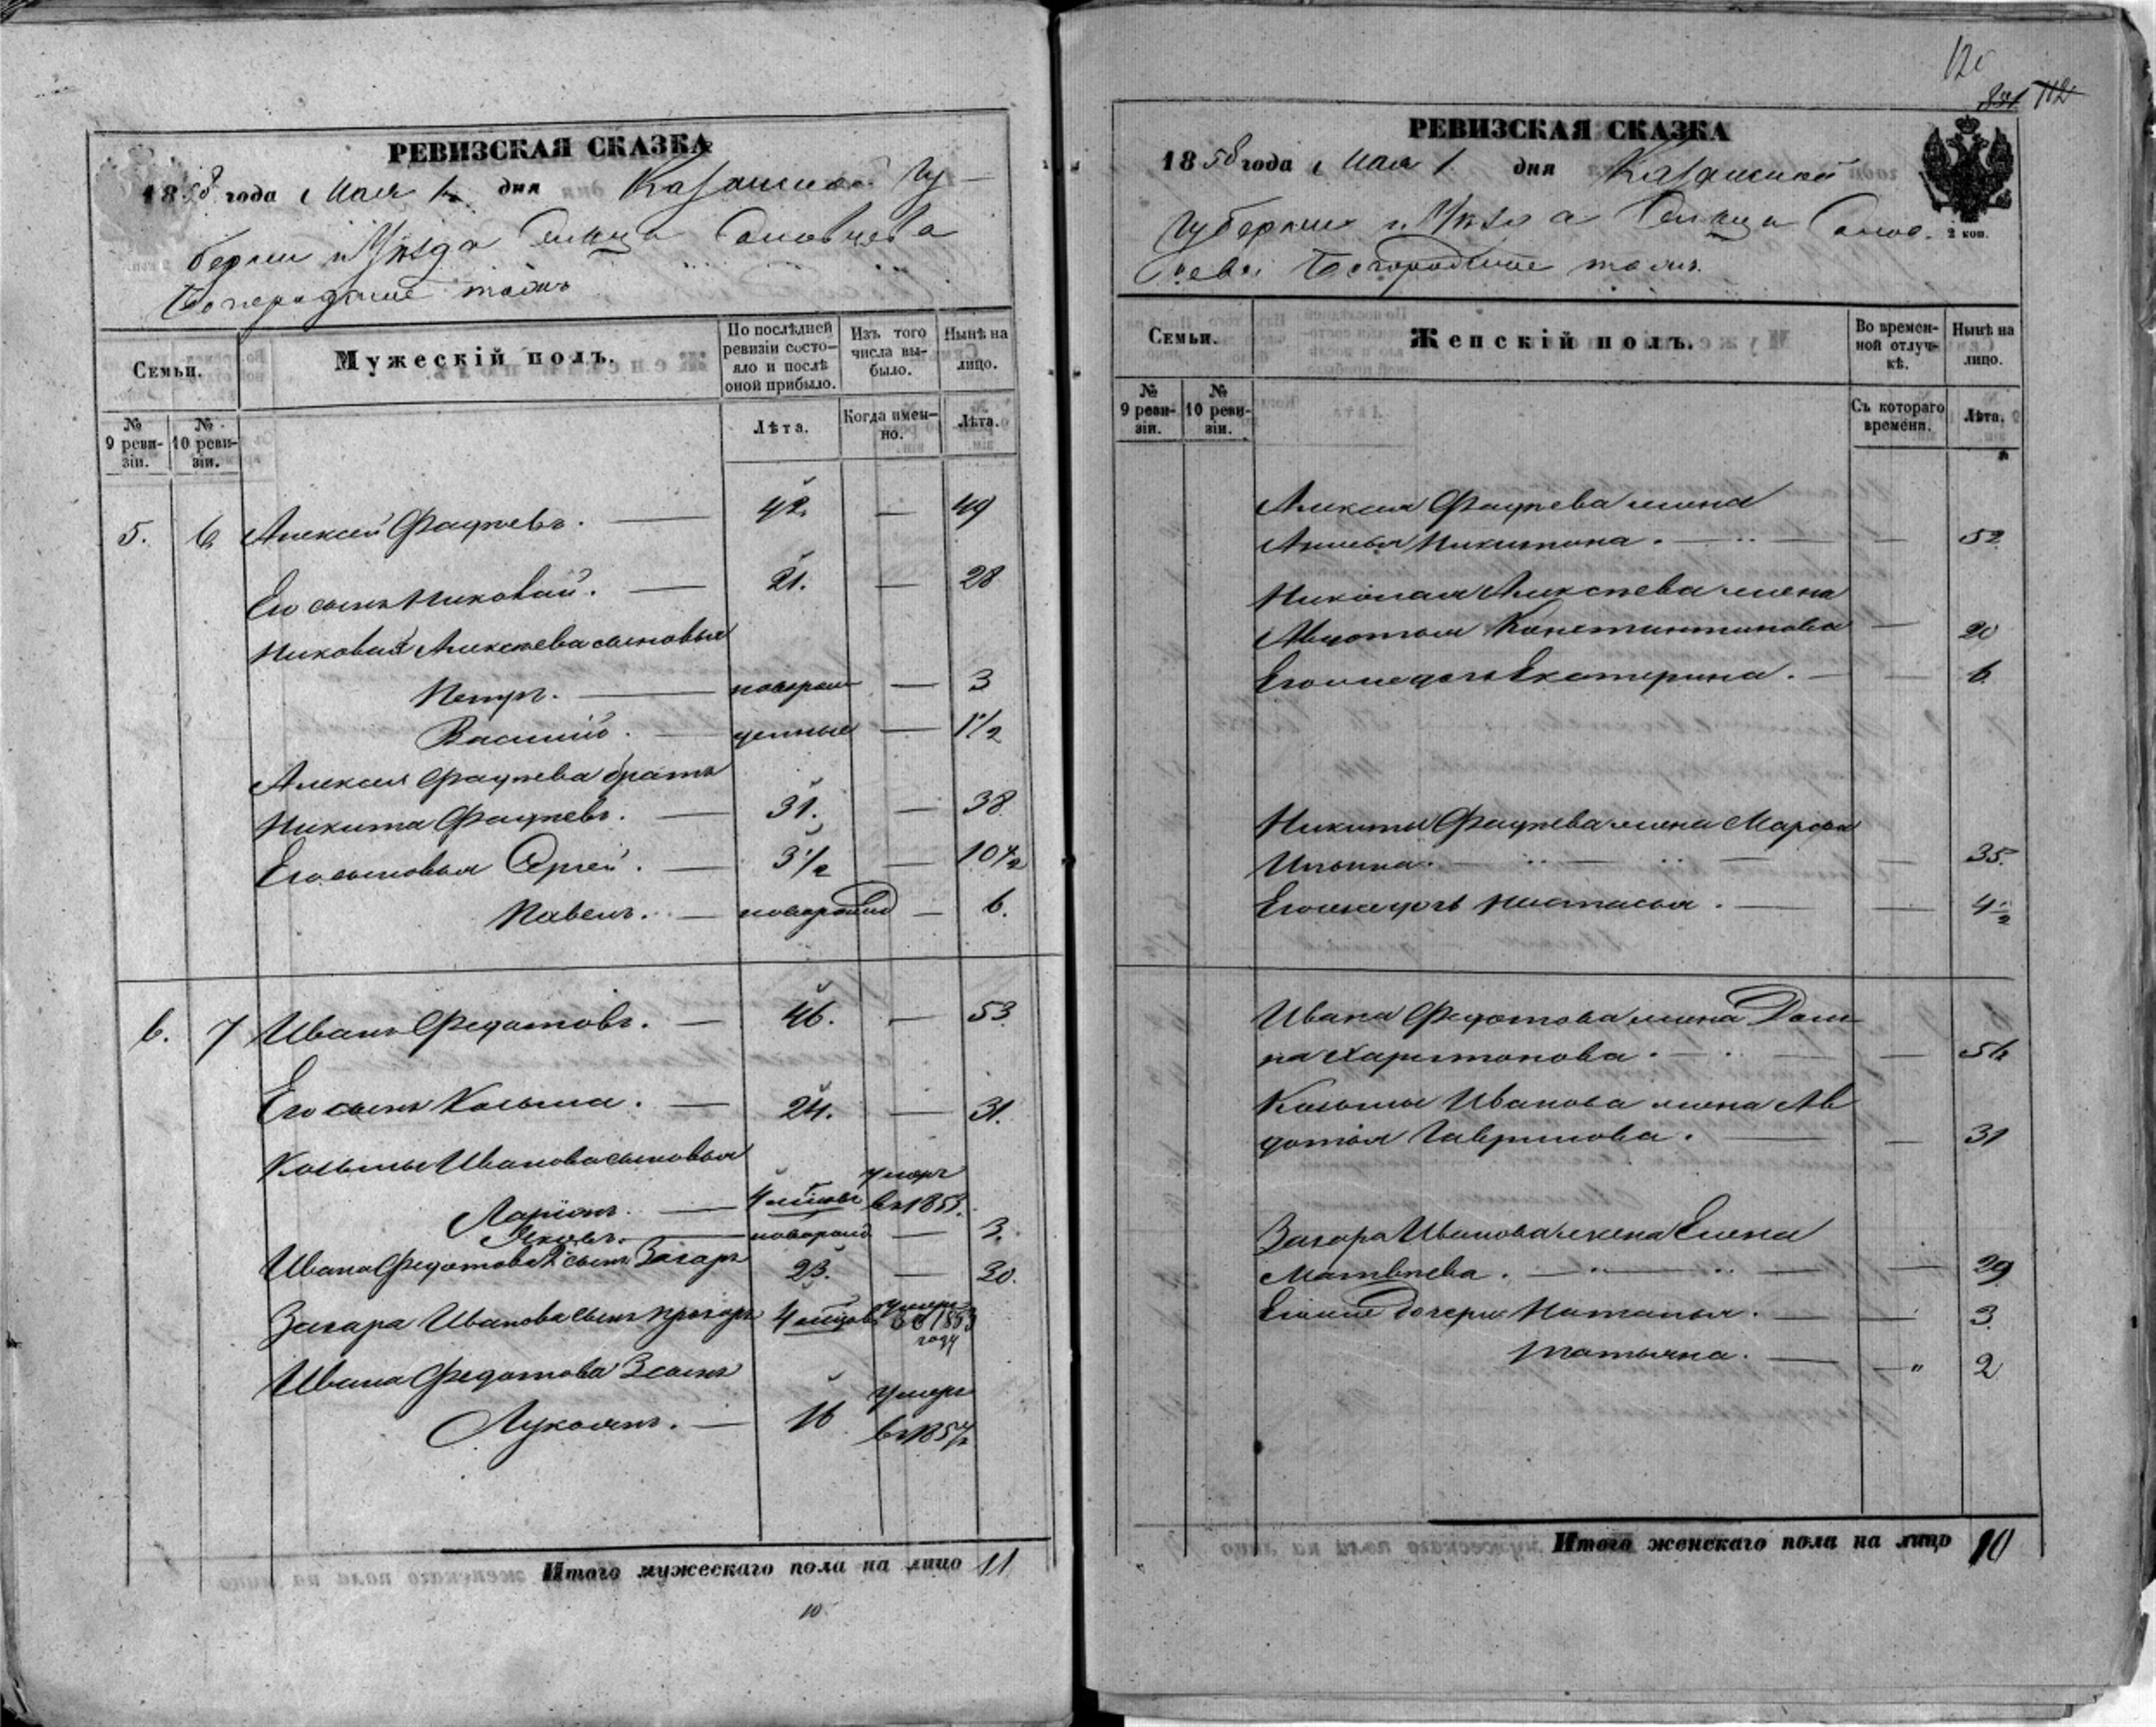 РЕВИЗСКАЯ СКАЗКА
1858 года Мая 1 дня Казанской Гу-
берніи и Уѣзда Сельца
тожъ
Семьи.
Мужескій полъ.
По послѣдней ревизіи состо-яло и послѣ оной прибыло.
Изъ того числа вы-было.
Нынѣ на лицо.
№ 9 реви-зіи.
№ 10 реви-зіи.
Лѣта.
Когда имен-но.
Лѣта.
5. 6 Алексей Фадѣевъ. — 42. — 49
Его сынъ Николай. — 21. — 28
Николая Алексѣева сыновья
Петръ. — новорож — 3
Василій. — денные — 1 1/2
Алексея Фадѣева братъ
Никита Фадѣевъ. — 31. — 38.
Его сыновья Сергей. — 3 1/2 — 10 1/2
Павелъ. — новорожд — 6.
6. 7 Иванъ Федотовъ. — 46. — 53.
Его сынъ Козьма. — 24. — 31.
Козьмы Иванова сыновья
Ларіонъ. — 4 умеръ въ 1853.
Яковъ. — новорожд — 3.
Ивана Федотова 2 сынъ Захаръ 23. — 30.
Захара Иванова сынъ 4 умеръ 1853 году
Ивана Федотова 3 сынъ
Лукоянъ. — 16 умеръ въ 1857
Итого мужескаго пола на лицо 11
10
12
112
РЕВИЗСКАЯ СКАЗКА
1858 года Мая 1. дня Казанской
Губерніи и Уѣзда Сельца
Богородское тожъ.
2 коп.
Семьи.
Женскій полъ.
Во времен-ной отлуч-кѣ.
Нынѣ на лицо.
№ 9 реви-зіи.
№ 10 реви-зіи.
Съ котораго времени.
Лѣта.
Алексея Фадѣева жена
Никитина. — — 52
Николая Алексѣева жена
Авдотья Константинова — 20
Его же дочь Екатерина. — — 6.
Никиты Фадѣева жена Марфа
Ильина. — — 35.
Его же дочь Настасья. — — 4 1/2
Ивана Федотова жена Дом-
на Харитонова. — — 56
Козьмы Иванова жена Ав
дотья Гаврилова. — — 31
Захара Иванова жена Елена
Матвѣева. — — 29
Его же дочери Наталья. — 3.
Татьяна. — — " 2
Итого женскаго пола на лицо 10